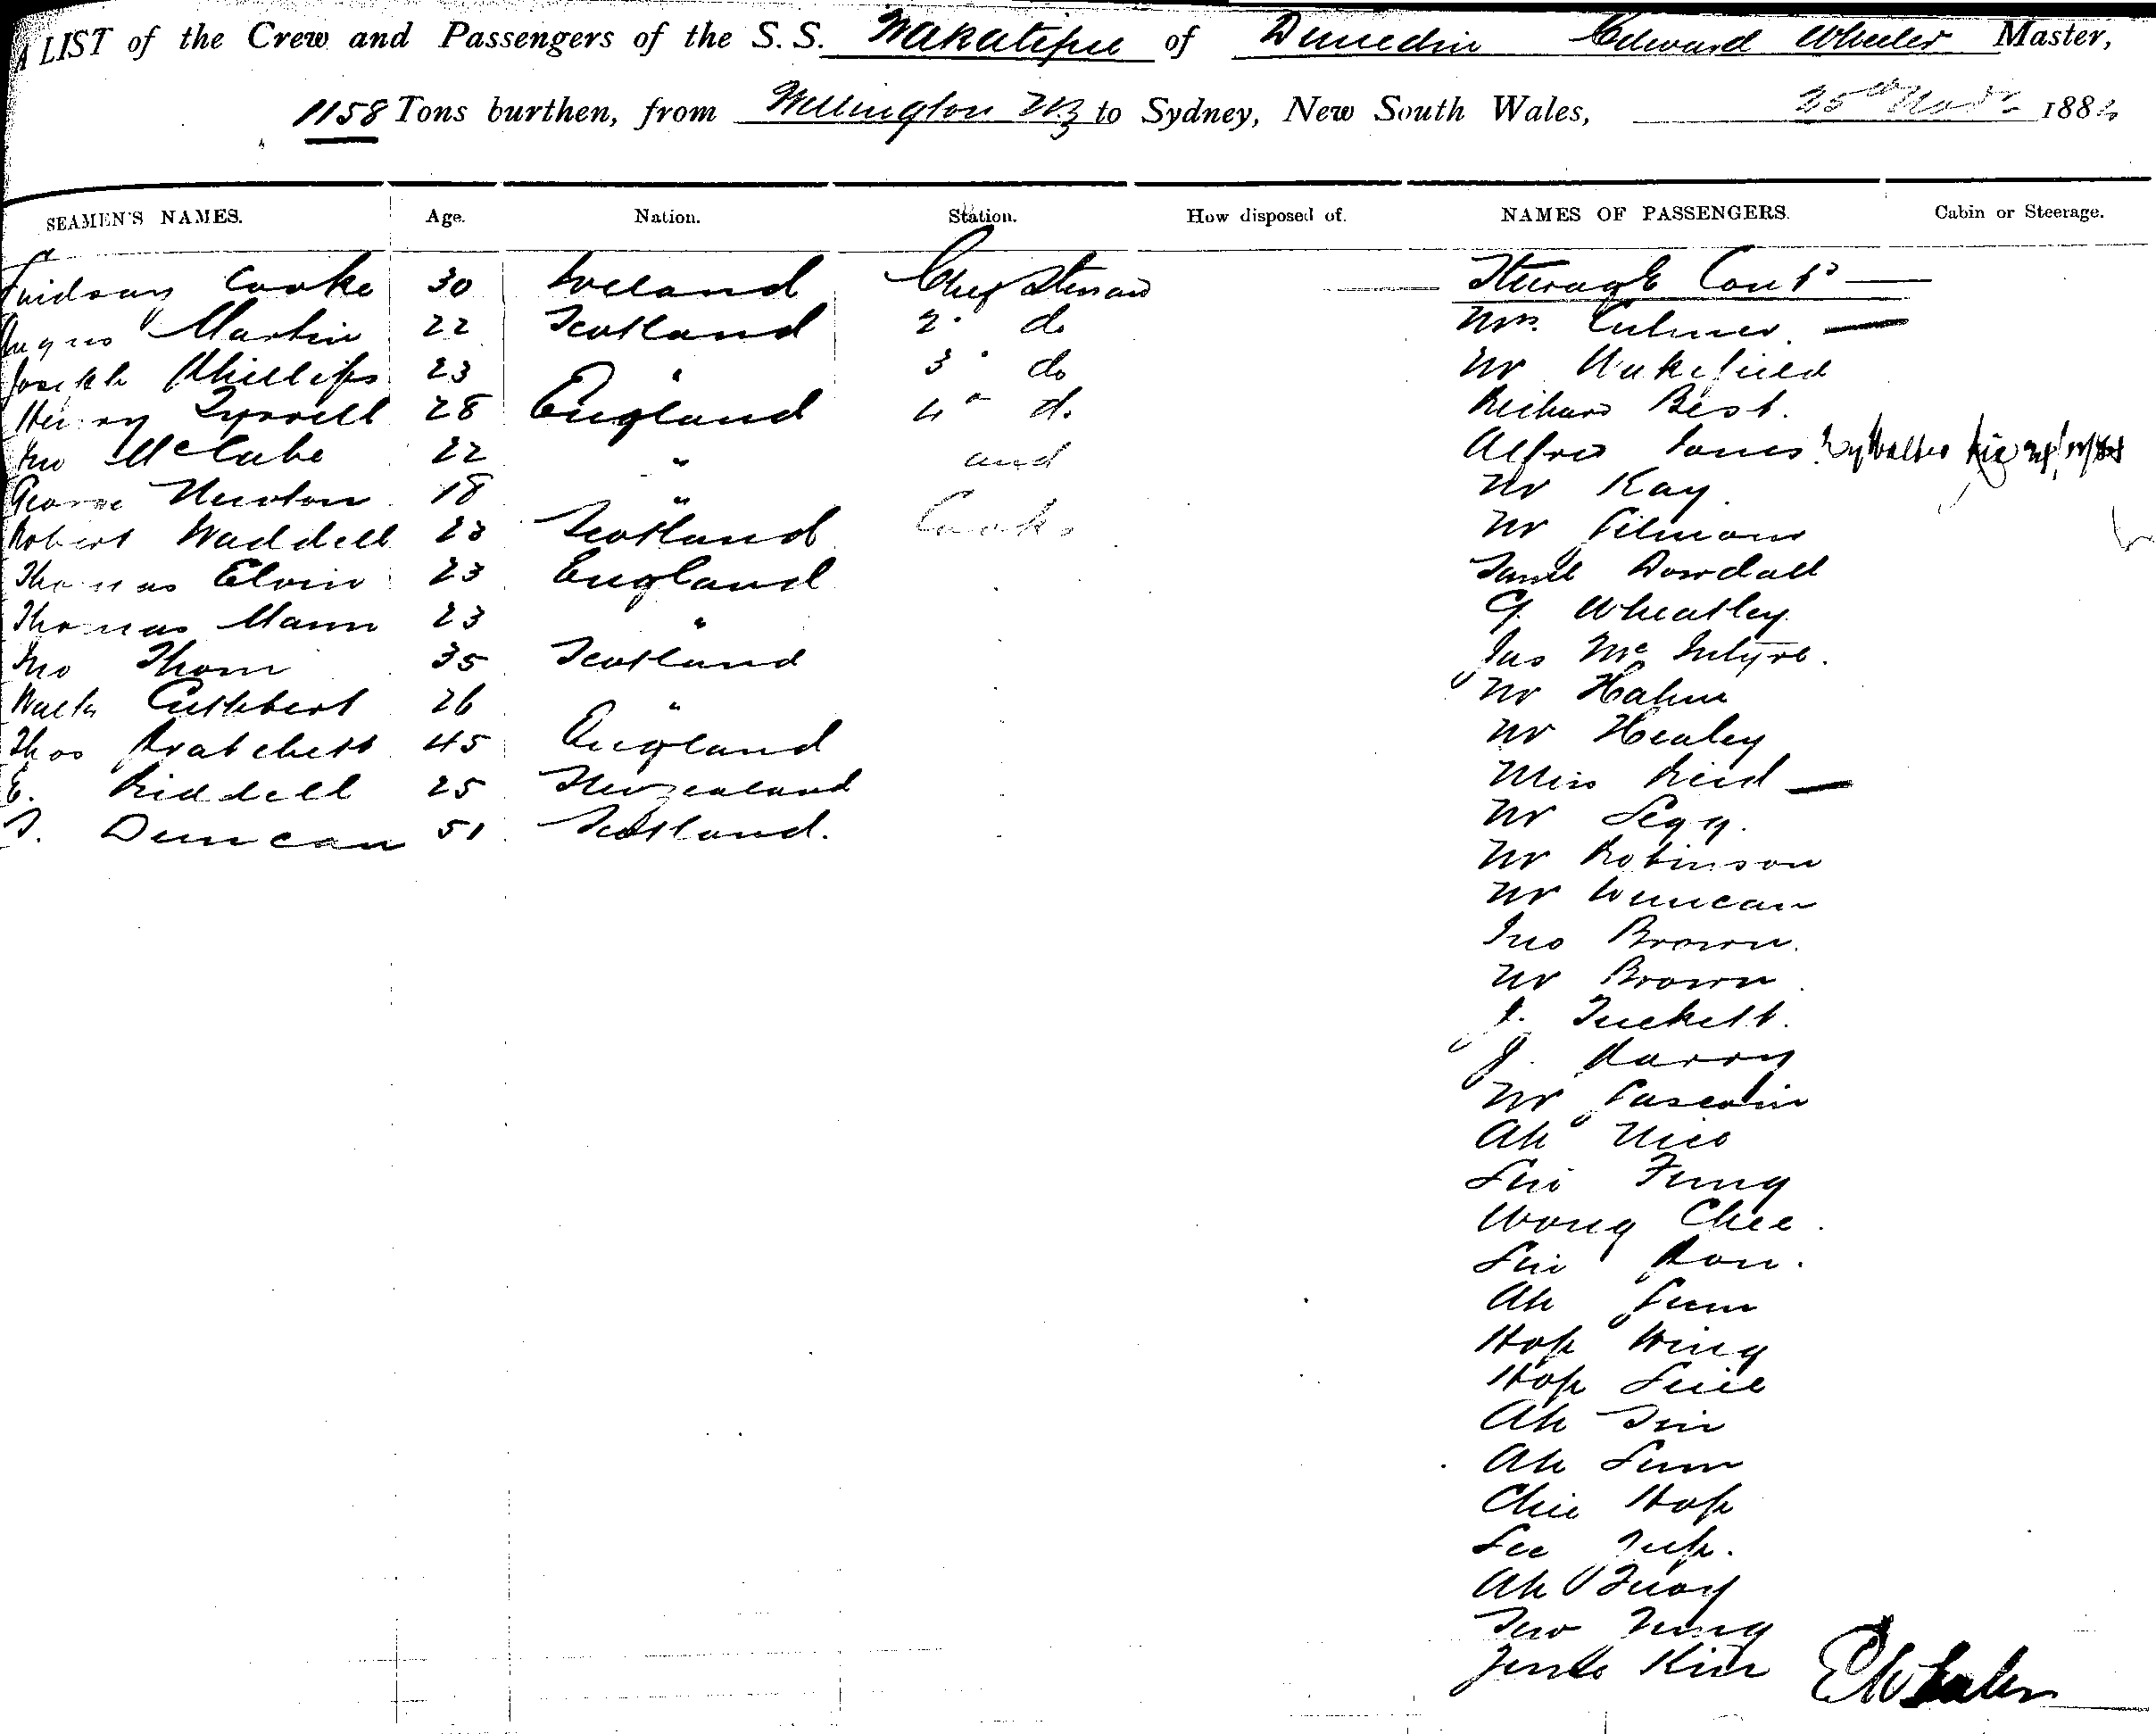 A LIST of the Crew and Passengers of the S.S. Wakatipu of Dunedin Edward Wheeler Master,
1158 Tons burthen, from Wellington N.Z to Sydney, New South Wales, 25th Novr 188
SEAMEN'S NAMES. Age. Nation. Station. How disposed of. NAMES OF PASSENGERS. Cabin or Steerage.
Lindsay Cooke 30 Ireland Chief Steward Steerage Contd
Angus Martin 22 Scotland 2. do Mrs.
Joseph Phillips 23 " 3. do Mr Wakefield
Henry Tyrrell 28 England 4 do Richard Best.
Jno McCabe 22 " and Alfred Jones
George Newton 18 " Mr Kay
Robert Waddell 23 Scotland Cooks Mr
Thomas Elvin 23 England Saml Dowdall
Thomas Mann 23 " G. Wheatley
Jno Thom 35 Scotland Jas McIntyre.
Walter Cuthbert 26 " Mr Hahn
Thos Pratchett 45 England Mr Healey
E. Riddell 25 New Zealand Miss Reid
T. Duncan 51 Scotland. Mr Legg.
Mr Robinson
Mr Duncan
Jno Brown.
Mr Brown
J. Tuckett.
J. Parry
Mr
Ah
Sui Fung
Wong Chee.
Sui
Ah
Hop Wing
Hop
Ah Sin
Ah Sum
Chie Hop
See
Ah Quoy
Kim
EWheeler